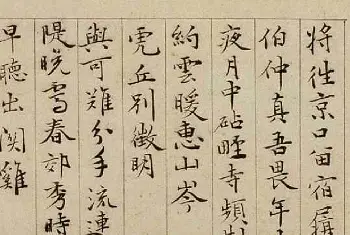 將往京口留宿
伯仲真吾畏年
夜月中砧野寺頻
約雲暖惠山岑
虎丘別徵明
與可難分手流連
隄晚雪春郊秀時
早聽出関雞